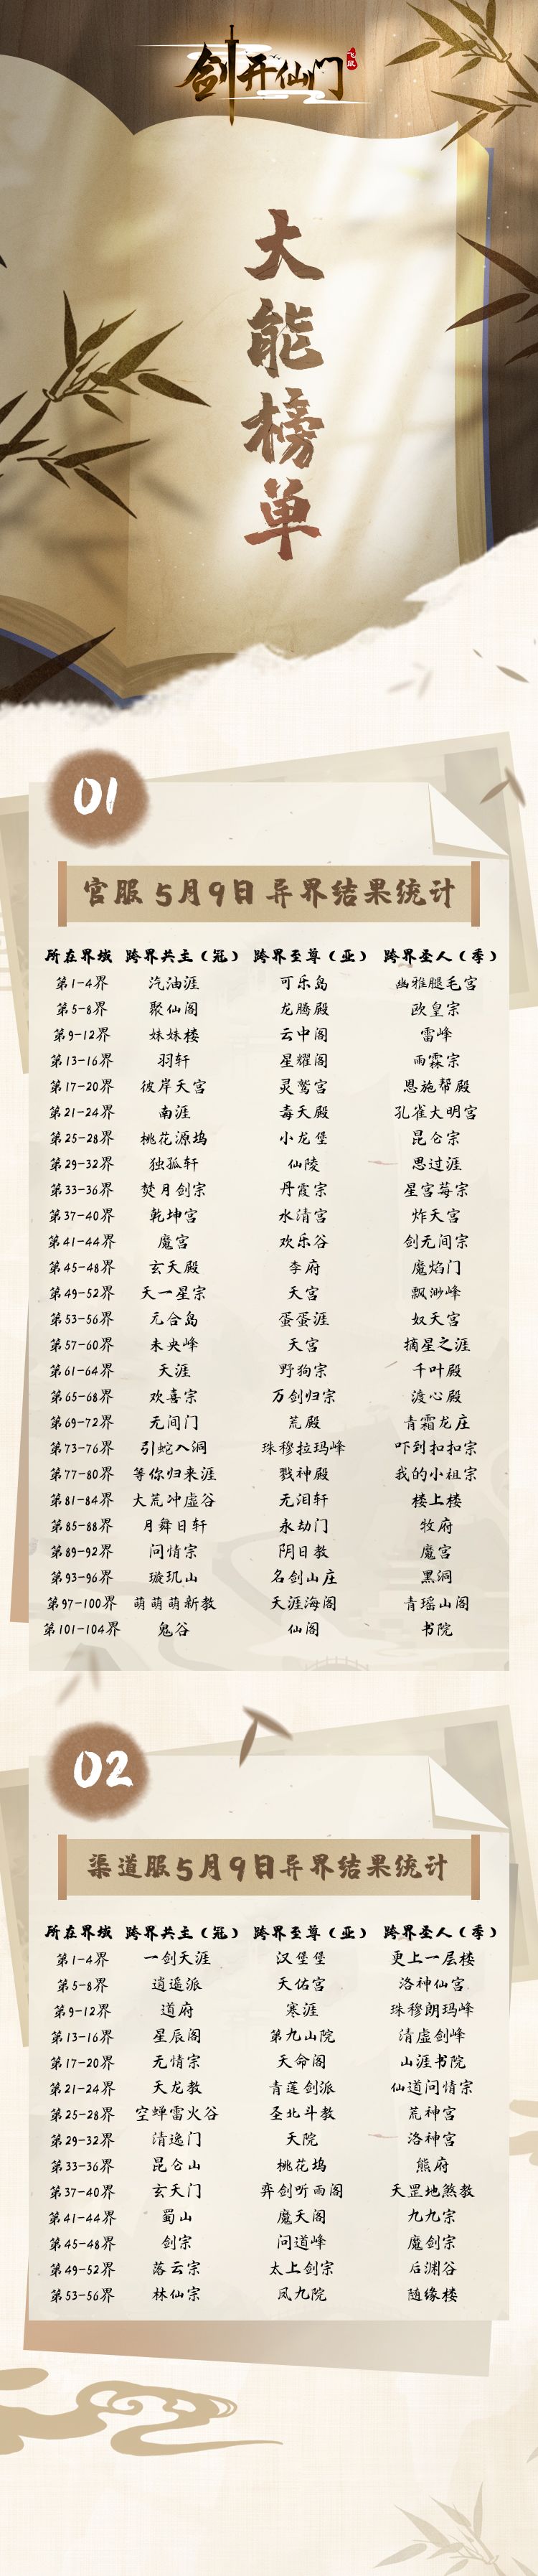 剑开仙门
大能榜单
01
官服 5月9日 异界结果统计
所在界域 跨界共主（冠） 跨界至尊（亚） 跨界圣人（季）
第1-4界 汽油涯 可乐岛 幽雅腿毛宫
第5-8界 聚仙阁 龙腾殿 欧皇宗
第9-12界 妹妹楼 云中阁 雷峰
第13-16界 羽轩 星耀阁 雨霖宗
第17-20界 彼岸天宫 灵鹫宫 恩施帮殿
第21-24界 南涯 毒天殿 孔雀大明宫
第25-28界 桃花源坞 小龙堡 昆仑宗
第29-32界 独孤轩 仙陵 思过涯
第33-36界 焚月剑宗 丹霞宗 星宫莓宗
第37-40界 乾坤宫 水清宫 炸天宫
第41-44界 魔宫 欢乐谷 剑无间宗
第45-48界 玄天殿 李府 魔焰门
第49-52界 天一星宗 天宫 飘渺峰
第53-56界 元合岛 蛋蛋涯 奴天宫
第57-60界 未央峰 天宫 摘星之涯
第61-64界 天涯 野狗宗 千叶殿
第65-68界 欢喜宗 万剑归宗 渡心殿
第69-72界 无间门 荒殿 青霜龙庄
第73-76界 引蛇入洞 珠穆拉玛峰 吓到扣扣宗
第77-80界 等你归来涯 戮神殿 我的小祖宗
第81-84界 大荒冲虚谷 无泪轩 楼上楼
第85-88界 月舞日轩 永劫门 牧府
第89-92界 问情宗 阴日教 魔宫
第93-96界 璇玑山 名剑山庄 黑洞
第97-100界 萌萌萌新教 天涯海阁 青瑶山阁
第101-104界 鬼谷 仙阁 书院
02
渠道服5月9日异界结果统计
所在界域 跨界共主（冠） 跨界至尊（亚） 跨界圣人（季）
第1-4界 一剑天涯 汉堡堡 更上一层楼
第5-8界 逍遥派 天佑宫 洛神仙宫
第9-12界 道府 寒涯 珠穆朗玛峰
第13-16界 星辰阁 第九山院 清虚剑峰
第17-20界 无情宗 天命阁 山涯书院
第21-24界 天龙教 青莲剑派 仙道问情宗
第25-28界 空蝉雷火谷 圣北斗教 荒神宫
第29-32界 清逸门 天院 洛神宫
第33-36界 昆仑山 桃花坞 熊府
第37-40界 玄天门 弈剑听雨阁 天罡地煞教
第41-44界 蜀山 魔天阁 九九宗
第45-48界 剑宗 问道峰 魔剑宗
第49-52界 落云宗 太上剑宗 后渊谷
第53-56界 林仙宗 凤九院 随缘楼